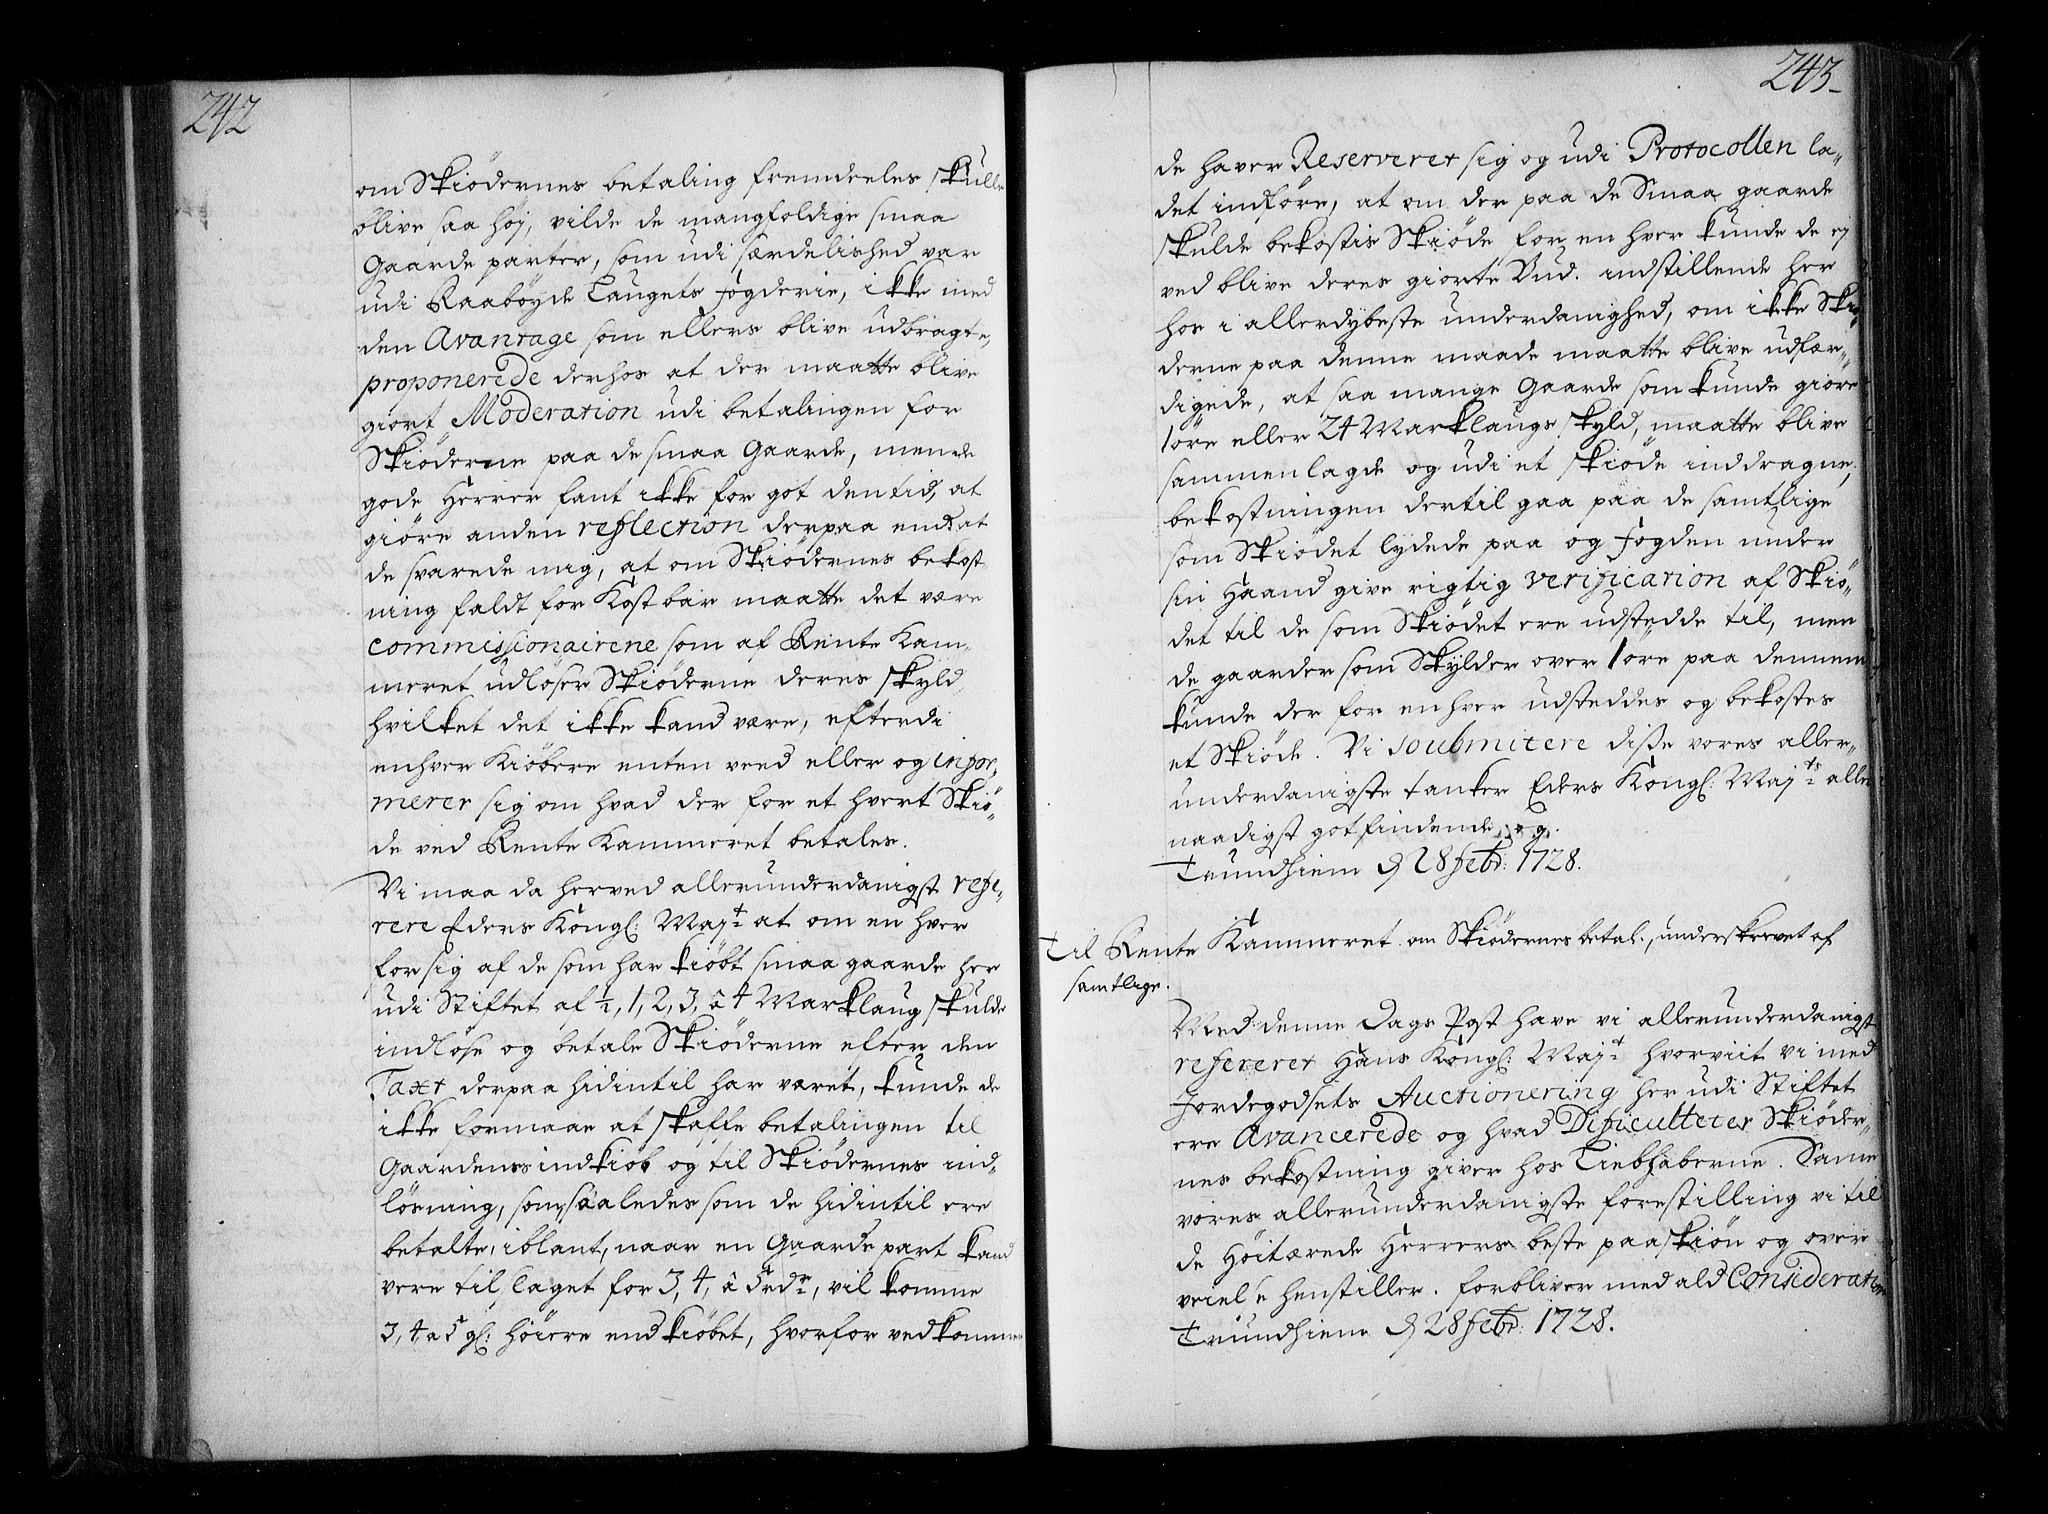 242
om Skiødernes betaling fremdeeles skulle
blive saa høy, vilde de mangfoldige smaa
Gaarde parter, som udi særdelished var
udi Raabøyde Laugets fogderie, ikke med
den Avantage som ellers blive udbragte,
proponerede derhos at der maatte blive
giort Moderation udi betalingen for
Skiøderne paa de smaa Gaarde, men de
gode Herrer fant ikke for got den tid, at
giøre anden reflection derpaa end at
de svarede mig, at om Skiødernes bekost
ning faldt for Kostbar maatte det være
commissionairene som af Rente Kam-
meret udløser Skiøderne deres skyld,
hvilket det ikke kand være, efterdi
enhver Kiøbere enten veed eller og infor-
merer sig om hvad der for et hvert Skiø-
de ved Rente Kammeret betales.
Vi maa da herved allerunderdanigst refe-
rere Eders Kongl: Mayt: at om en hver
for sig af de som har kiøbt smaa gaarde her
udi Stiftet af ½, 1, 2, 3, â 4 Marklaug skulde
indløse og betale Skiøderne efter den
Taxt derpaa hidintil har været, kunde de
ikke formaae at skaffe betalingen til
Gaardens indkiøb og til Skiødernes ind-
løsning, som saaledes som de hidintil ere
betalte, iblant, naar en Gaarde part kand
være til slaget for 3, 4, â 5 rdr, vil komme
3, 4 a 5 gl: høiere end kiøbet, hvorfor vedkommen
243
de haver Reserveret sig og udi Protocollen la-
det indføre, at om der paa de Smaa gaarde
skulde bekostis Skiøde for en hver kunde de ej
ved blive deres giorte Bud. indstillende her
hos i allerdybeste underdanighed, om ikke Skiø-
derne paa denne maade maatte blive udfær-
digede, at saa mange Gaarde som kunde giøre
1 øre eller 24 Marklaugs skyld, maatte blive
sammenlagde og udi et skiøde inddragne,
bekostningen dertil gaa paa de samtlige
som Skiødet lydede paa og fogden under
sin Haand give rigtig verification af Skiø-
det til de som Skiødet ere udstedde til, men
de gaarder som Skylder over 1 øre paa dennem
kunde der for enhver udsteddes og bekostes
et Skiøde. Vi soubmitere disse vores aller-
underdanigste tanker Eders Kongl: Mayts: aller
naadigst gotfindende, og.
Trundhiem d 28 febr: 1728.
Til Rente Kammeret om Skiødernes betal., underskrevet af
samtlige.
Med denne Dags Post have vi allerunderdanigst
refereret Hans Kongl: Mayt: hvorviit vi med
Jordegodsets Auctionering her udi Stiftet
ere Avancerede og hvad Dificulteter Skiøder-
nes bekostning giver hos Liebhaberne. Samme
vores allerunderdanigste forestilling vi til
de Høitærede Herrers beste paaskiøn og over
veielse henstiller. forbliver med ald Consideration
Trundhiem d 28 febr: 1728.